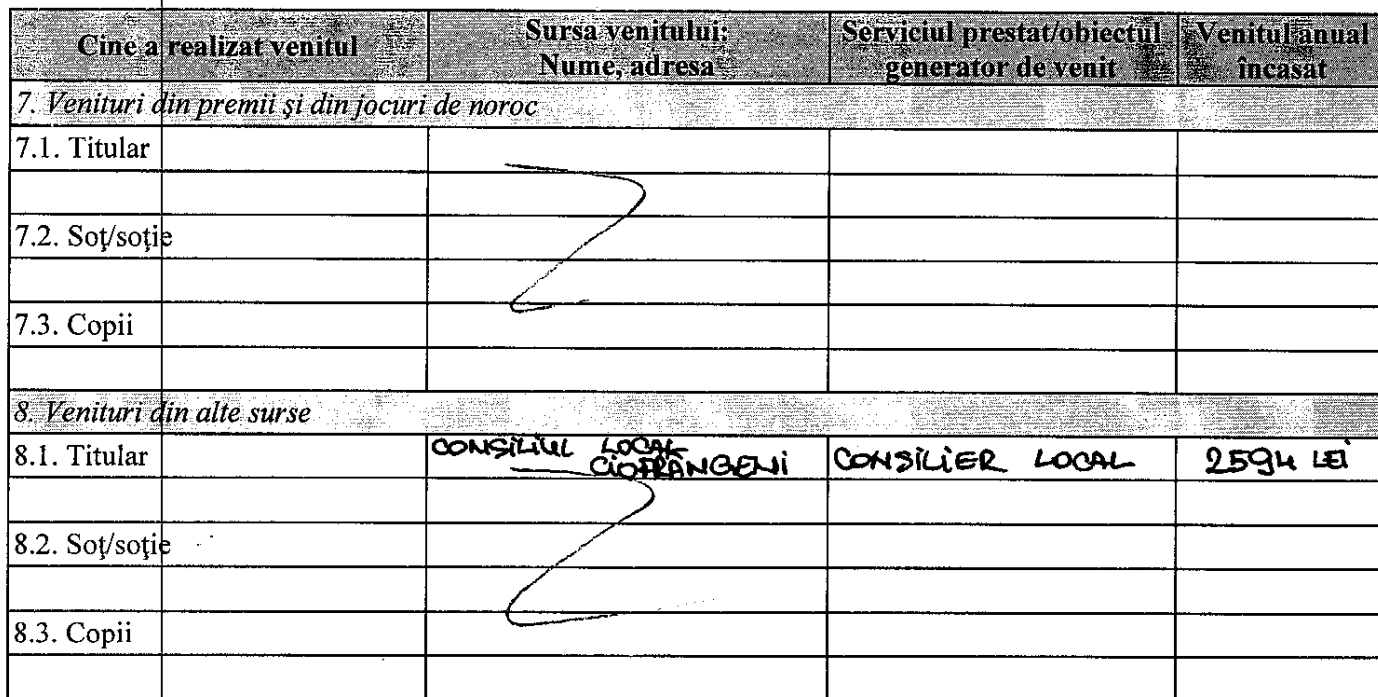 Cine a realizat venitul
Sursa venitului:
Nume, adresa
Serviciul prestat/obiectul
generator de venit
Venitul anual
încasat
7. Venituri din premii şi din jocuri de noroc
7.1. Titular
7.2. Soţ/soţie
7.3. Copii
8. Venituri din alte surse
8.1. Titular
CONSILIUL LOCAL
CIOFRÂNGENI
CONSILIER LOCAL
2594 LEI
8.2. Soţ/soţie
8.3. Copii